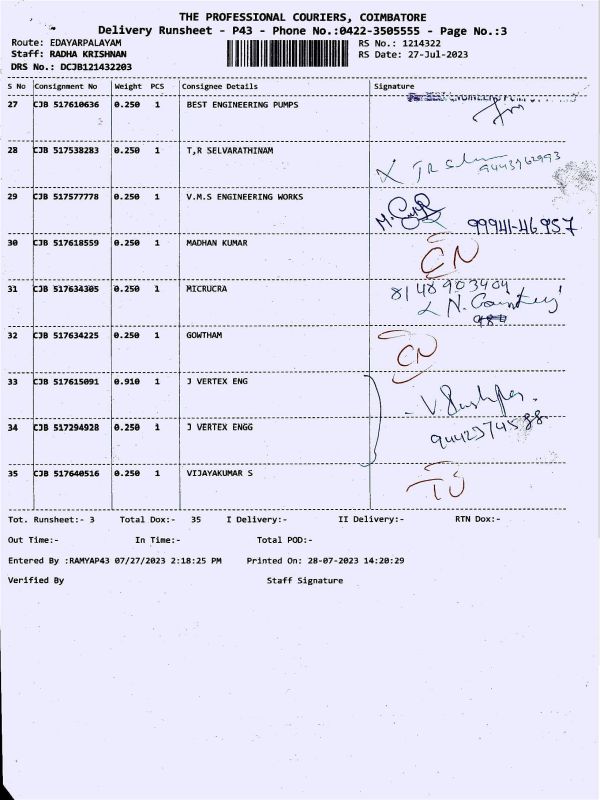 THE PROFESSIONAL COURIERS, COIMBATORE
Delivery Runsheet - P43 - Phone No.:0422-3505555 - Page No.:3
Route: EDAYARPALAYAM RS No.: 1214322
Staff: RADHA KRISHNAN RS Date: 27-Jul-2023
DRS No.: DCJB121432203
S No Consignment No Weight PCS Consignee Details Signature
27 CJB 517610636 0.250 1 BEST ENGINEERING PUMPS
28 CJB 517538283 0.250 1 T,R SELVARATHINAM
9443962993
29 CJB 517577778 0.250 1 V.M.S ENGINEERING WORKS
99941-46957
30 CJB 517618559 0.250 1 MADHAN KUMAR CN
31 CJB 517634305 0.250 1 MICRUCRA 8148903404
32 CJB 517634225 0.250 1 GOWTHAM CN
33 CJB 517615091 0.910 1 J VERTEX ENG
34 CJB 517294928 0.250 1 J VERTEX ENGG 9442374588
35 CJB 517640516 0.250 1 VIJAYAKUMAR S TJ
Tot. Runsheet:- 3 Total Dox:- 35 I Delivery:- II Delivery:- RTN Dox:-
Out Time:- In Time:- Total POD:-
Entered By :RAMYAP43 07/27/2023 2:18:25 PM Printed On: 28-07-2023 14:20:29
Verified By Staff Signature